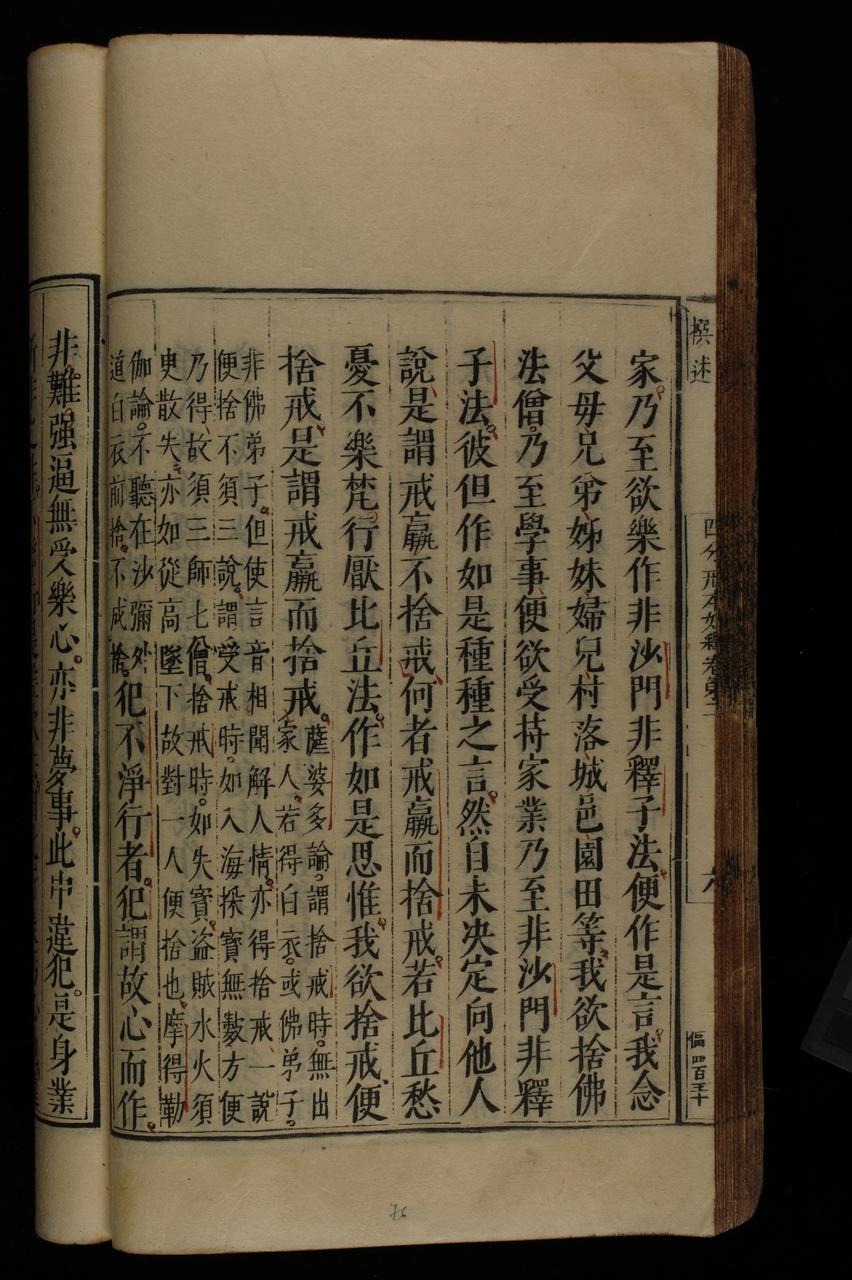 撰述
四分戒本如釋卷第二
六
傴四百五十
家乃至欲樂作非沙門非釋子法便作是言我念
父母兄弟姊妹婦兒村落城邑園田等我欲捨佛
法僧乃至學事便欲受持家業乃至非沙門非釋
子法彼但作如是種種之言然自未決定向他人
說是謂戒羸不捨戒何者戒羸而捨戒若比丘愁
憂不樂梵行厭比丘法作如是思惟我欲捨戒便
捨戒是謂戒羸而捨戒薩婆多論謂捨戒時無出
家人若得白衣或佛弟子
非佛弟子但使言音相聞解人情亦得捨戒一說
便捨不須三說謂受戒時如入海採寶無數方便
乃得故須三師七僧捨戒時如失寶盜賊水火須
臾散失亦如從高墜下故對一人便捨也摩得勒
伽論不聽在沙彌外
道白衣前捨不成捨犯不淨行者犯謂故心而作
非難强逼無受樂心亦非夢事此中違犯是身業